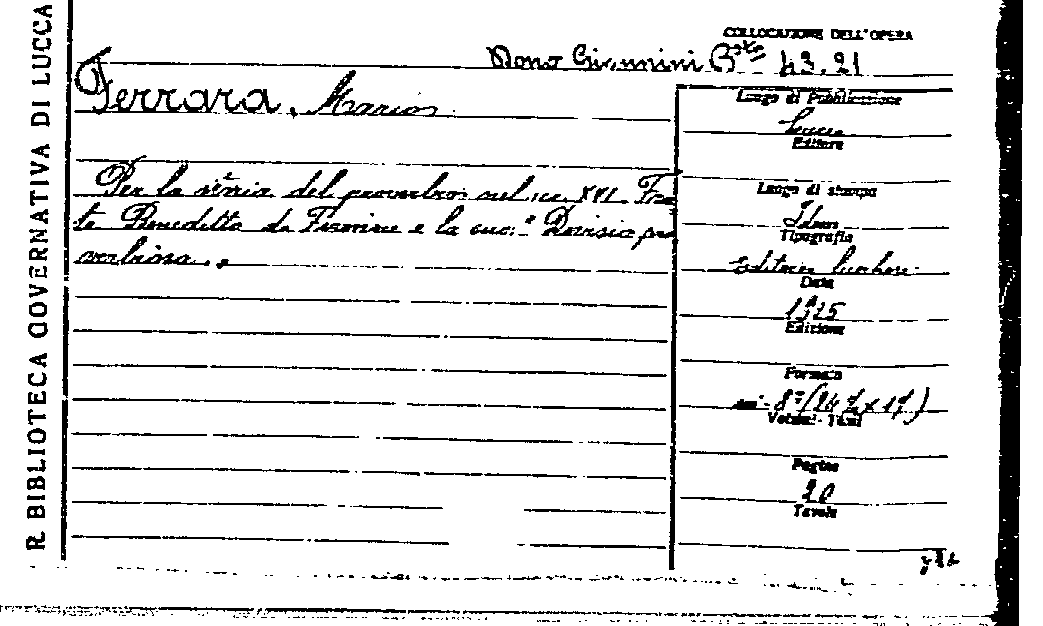 R. BIBLIOTECA GOVERNATIVA DI LUCCA
COLLOCAZIONE DELL'OPERA
Dono Giannini Bta 43.21
Ferrara, Mario
Per la storia del proverbio nel sec. XVI. Fra
te Benedetto da Firenze e la sua: "Divisio pro
verbiosa."
Luogo di Pubblicazione
Lucca
Editore
Luogo di stampa
Idem
Tipografia
Editrice Lucchese
Data
1925
Edizione
Formato
8º (24 ½ x 17)
Volumi - Tomi
Pagine
20
Tavole